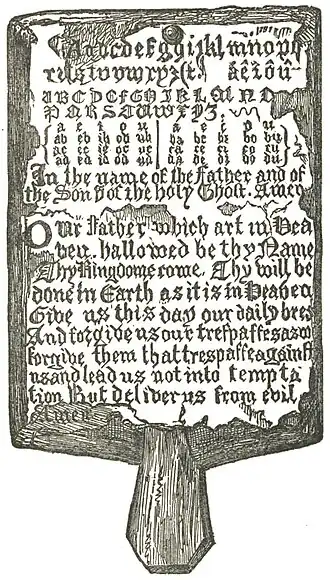 Aabcdefghijklmnopq
rſstuvwxyz&. aeiou
ABCDEFGHIKLMNO
PQRSTUWXYZ.
a e i o u a e i o u
ab eb ib ob ub ba be bi bo bu
ac ec ic oc uc ca ce ci co cu
ad ed id od ud da de di do du
In the name of the Father and of
the Son & of the holy Ghost. Amen
Our Father which art in Hea
ven, hallowed be thy Name
Thy Kingdome come, Thy will be
done in Earth as it is in Heaven.
Give us this day our daily bred
And forgive us our treſpaſſes as we
forgive them that treſpaſſe againſt
us and lead us not into tempta
tion But deliver us from evil
Amen